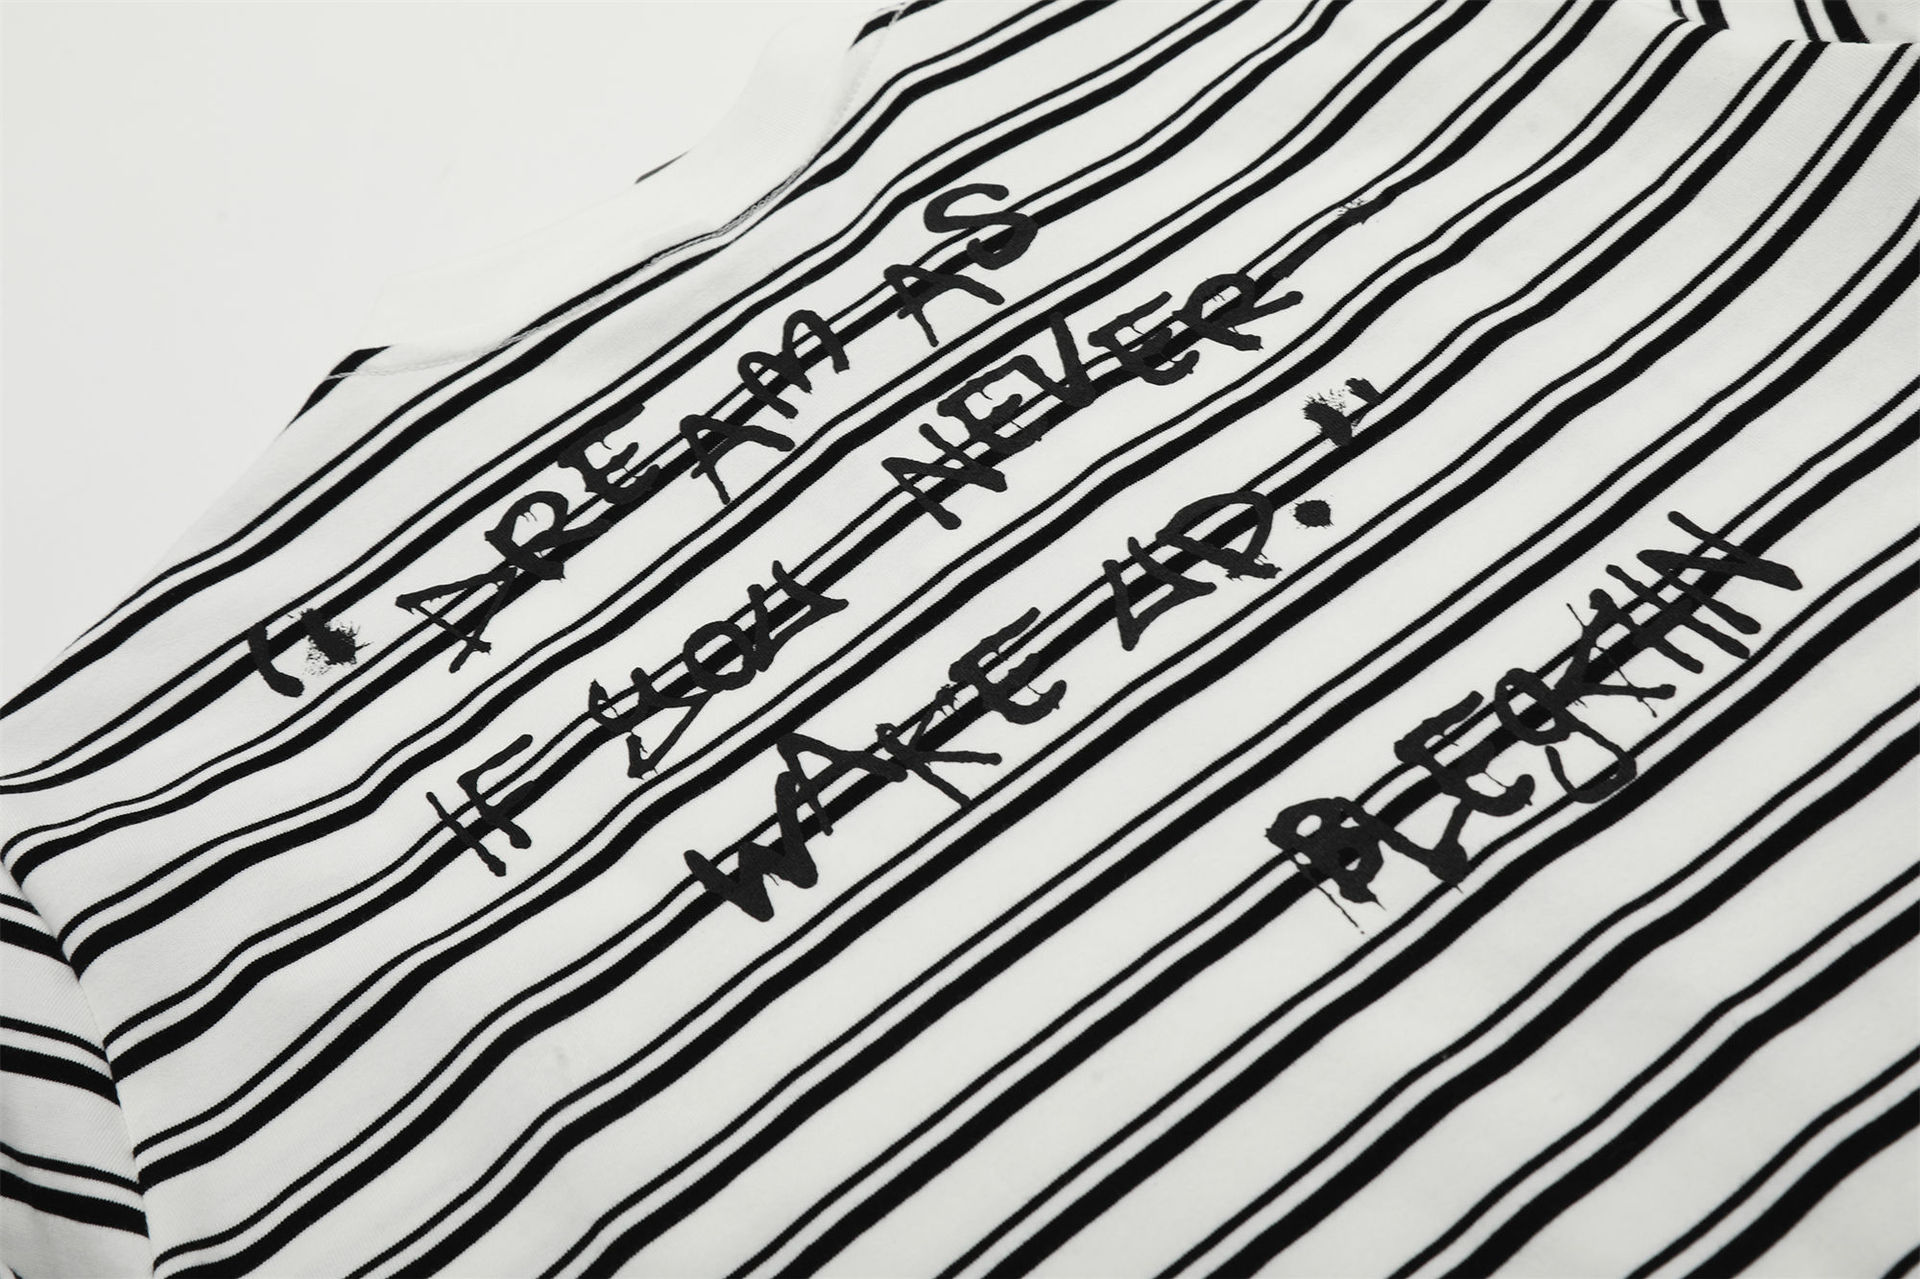 "DREAM AS
IF YOU NEVER
WAKE UP."
BLEGKIN